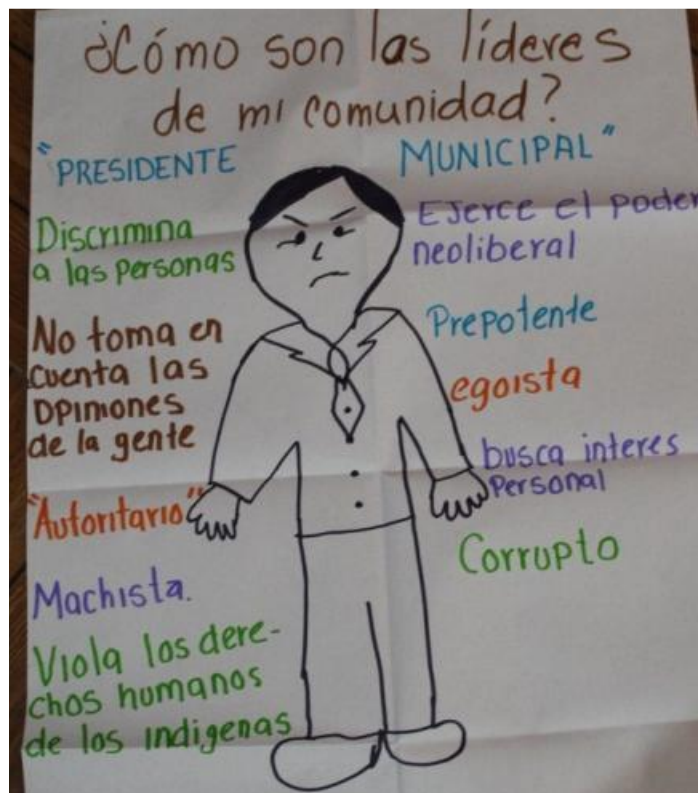 ¿Cómo son las líderes
de mi comunidad?
"PRESIDENTE MUNICIPAL"
Discrimina
a las personas
No toma en
cuenta las
opiniones
de la gente
"Autoritario"
Machista.
Viola los dere-
chos humanos
de los indigenas
Ejerce el poder
neoliberal
Prepotente
egoista
busca interes
Personal
Corrupto